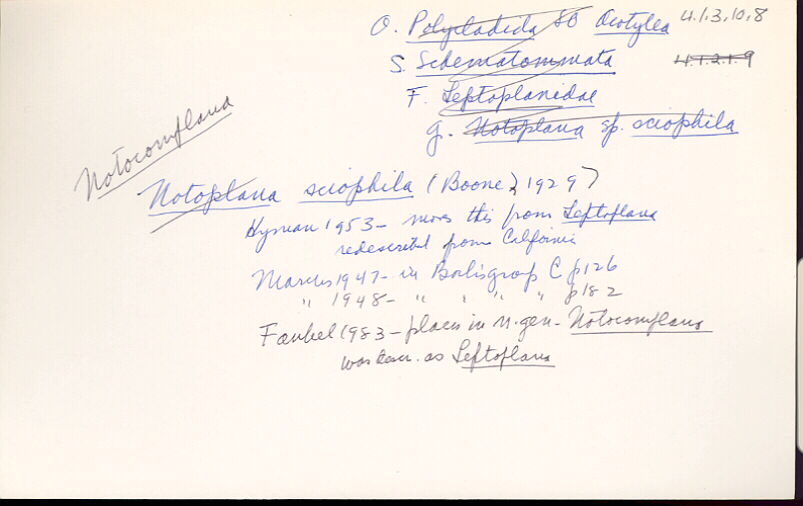 O. Polycladida SO Acotylea 4.1.3.10.8
S. Schematommata 4.1.2.1.9
F. Leptoplanidae
g. Notoplana sp. sciophila
Notocomplana
Notoplana sciophila (Boone, 1929)
Hyman 1953 - moves this from Leptoplana
redescribed from California
Marcus 1947 - in Bock's group C p126
" 1948 - " " " " p182
Faubel 1983 - places in n. gen - Notocomplana
was descr. as Leptoplana